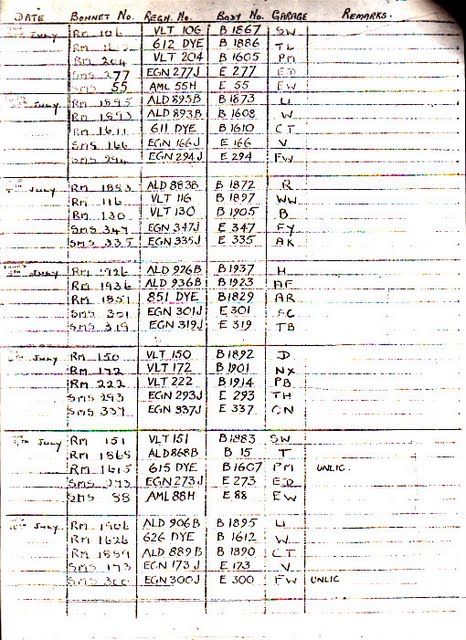 DATE BONNET No. REGN. No. BODY No. GARAGE REMARKS.
July RM 106 VLT 106 B 1867 SW
RM 612 DYE B 1886 TL
RM 204 VLT 204 B 1605 PM
SMS 277 EGN 277J E 277 ED
SMS 55 AML 55H E 55 EW
July RM 1895 ALD 895B B 1873 U
RM 1893 ALD 893B B 1608 W
RM 1611 611 DYE B 1610 CT
SMS 166 EGN 166J E 166 V
SMS 294 EGN 294J E 294 FW
July RM 1883 ALD 883B B 1872 R
RM 116 VLT 116 B 1897 WW
RM 130 VLT 130 B 1905 B
SMS 347 EGN 347J E 347 FY
SMS 335 EGN 335J E 335 AK
July RM 1926 ALD 926B B1937 H
RM 1936 ALD 936B B 1923 AF
RM 1851 851 DYE B1829 AR
SMS 301 EGN 301J E 301 AC
SMS 319 EGN 319J E 319 TB
July RM 150 VLT 150 B 1892 D
RM 172 VLT 172 B 1901 NX
RM 222 VLT 222 B 1914 PB
SMS 293 EGN 293J E 293 TH
SMS 337 EGN 337J E 337 CN
July RM 151 VLT 151 B1883 SW
RM 1868 ALD 868B B 15 T
RM 1615 615 DYE B 1607 PM UNLIC.
SMS 273 EGN 273J E 273 ED
SMS 88 AML 88H E 88 EW
July RM 1906 ALD 906B B 1895 U
RM 1626 626 DYE B 1612 W
RM 1889 ALD 889B B 1890 CT
SMS 173 EGN 173 J E 173 V
SMS 300 EGN 300J E 300 FW UNLIC